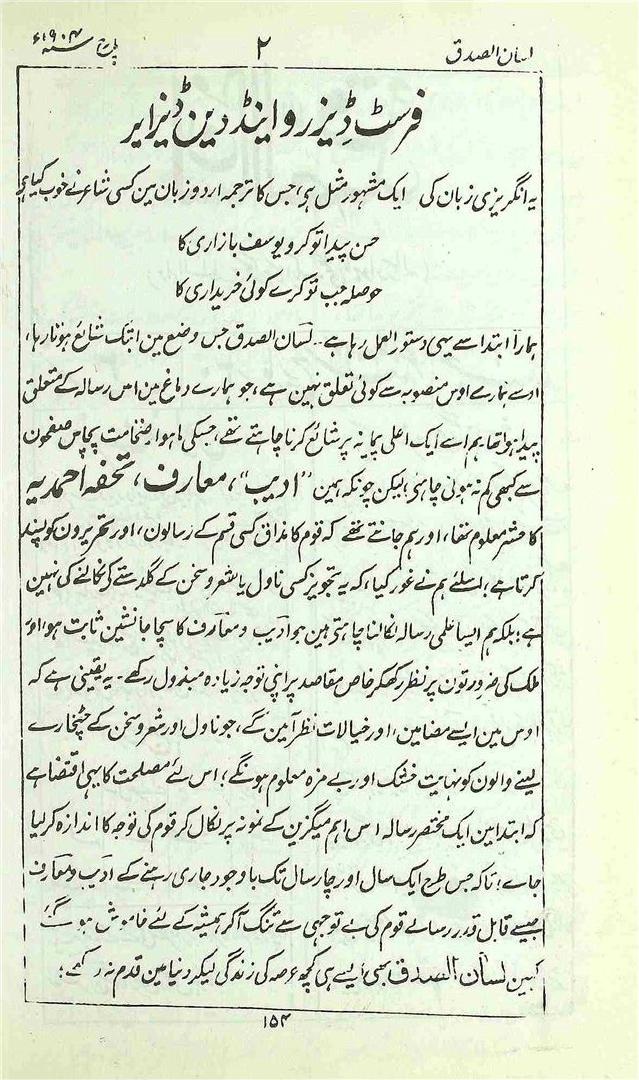 لسان الصدق
۲
مارچ سنہ ۱۹۰۴ء
فرسٹ ڈِیزرو اینڈ دین ڈیزایر
یہ انگریزی زبان کی ایک مشہور مثل ہی، جس کا ترجمہ اردو زبان مین کسی شاعر نے خوب کیا ہی
حسن پیدا تو کرو یوسف بازاری کا
حوصلہ جب تو کرے کوئی خریداری کا
ہمارا ابتدا سے یہی دستور العمل رہا ہے۔۔ لسان الصدق جس وضع مین ابتک شائع ہوتا رہا،
اوسے ہمارے اوس منصوبہ سے کوئی تعلق نہین ہے، جو ہمارے دماغ مین اس رسالہ کے متعلق
پیدا ہوا تھا ہم اسے ایک اعلی پیمانہ پر شائع کرنا چاہتے تھے، جسکی ماہوار ضخامت پچاس صفحون
سے کبھی کم نہ ہونی چاہئی؛ لیکن چونکہ ہمین "ادیب"، معارف، تحفہ احمدیہ
کا حشر معلوم تھا، اور ہم جانتے تھے کہ قوم کا مذاق کس قسم کے رسالون، اور تحریرون کو پسند
کرتا ہے؛ اسلئے ہم نے غور کیا، کہ یہ تجویز کسی ناول یا شعر و سخن کے گلدستے کی نکالنے کی نہین
ہے؛ بلکہ ہم ایسا علمی رسالہ نکالنا چاہتی ہین جو ادیب و معارف کا سچا جانشین ثابت ہو، اور
ملک کی ضرورتون پر نظر رکھکر خاص مقاصد پر اپنی توجہ زیادہ مبذول رکھے۔ یہ یقینی ہے کہ
اوس مین ایسے مضامین، اور خیالات نظر آئین گے، جو ناول اور شعر و سخن کے چٹخارے
لینے والون کو نہایت خشک اور بے مزہ معلوم ہونگے؛ اس لئے مصلحت کا یہی اقتضا ہے
کہ ابتدا مین ایک مختصر رسالہ اس اہم میگزین کے نمونہ پر نکال کر قوم کی توجہ کا اندازہ کر لیا
جاے؛ تاکہ جس طرح ایک سال اور چار سال تک باوجود جاری رہنے کے ادیب و معارف
جیسے قابل قدر رسالے قوم کی بے توجہی سے تنگ آکر ہمیشہ کے لئے خاموش ہو گئے
کہین لسان الصدق بھی ایسے ہی کچھ عرصہ کی زندگی لیکر دنیا مین قدم نہ رکھے؛
۱۵۴